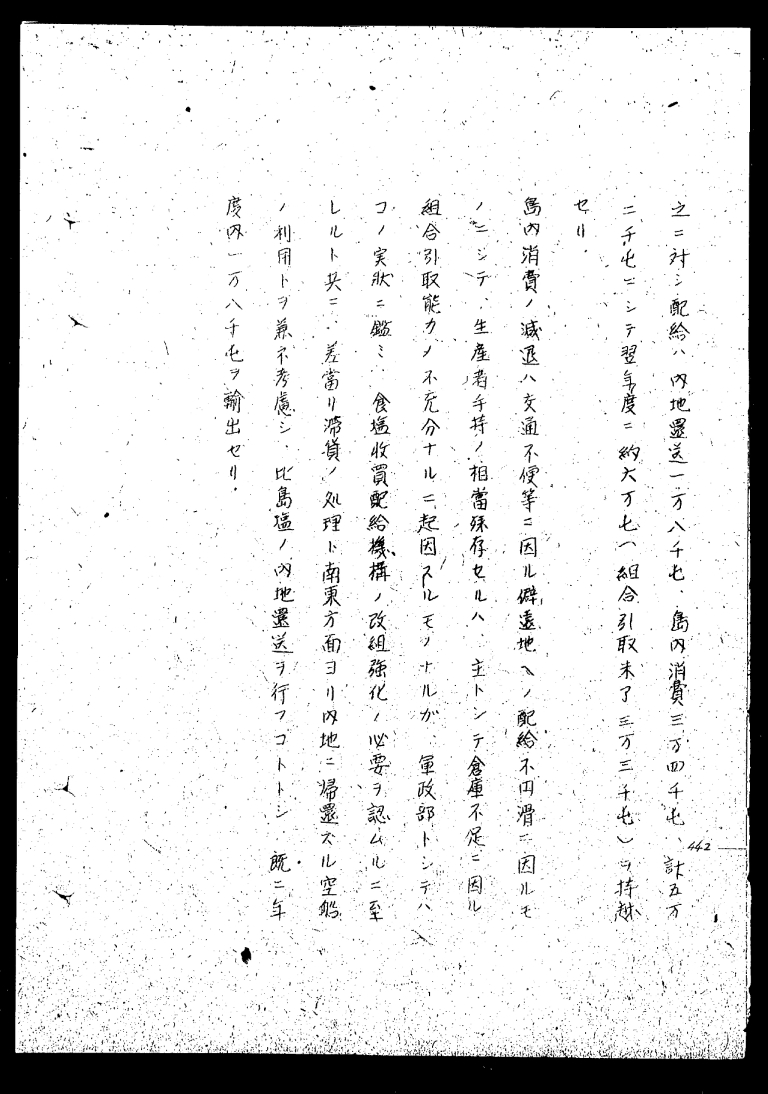 之ニ対シ配給ハ内地還送一万八千屯、島内消費三万四千屯、計五万
二千屯ニシテ翌年度ニ約六万屯(組合引取未了三万三千屯)ヲ持越
セリ.
島内消費ノ減退ハ交通不便等ニ因ル僻遠地ヘノ配給不円滑ニ因ルモ
ノニシテ、生産者手持ノ相當残存セルハ、主トシテ倉庫不足ニ因ル
組合引取能力ノ不充分ナルニ起因スルモノナルガ、軍政部トシテハ
コノ実状ニ鑑ミ、食塩收買配給機構ノ改組強化ノ必要ヲ認ムルニ至
レルト共ニ、差當リ滞貨ノ処理ト南東方面ヨリ内地ニ帰還スル空船
ノ利用トヲ兼ネ考慮シ、比島塩ノ内地還送ヲ行フコトトシ、既ニ年
度内一万八千屯ヲ輸出セリ.
442